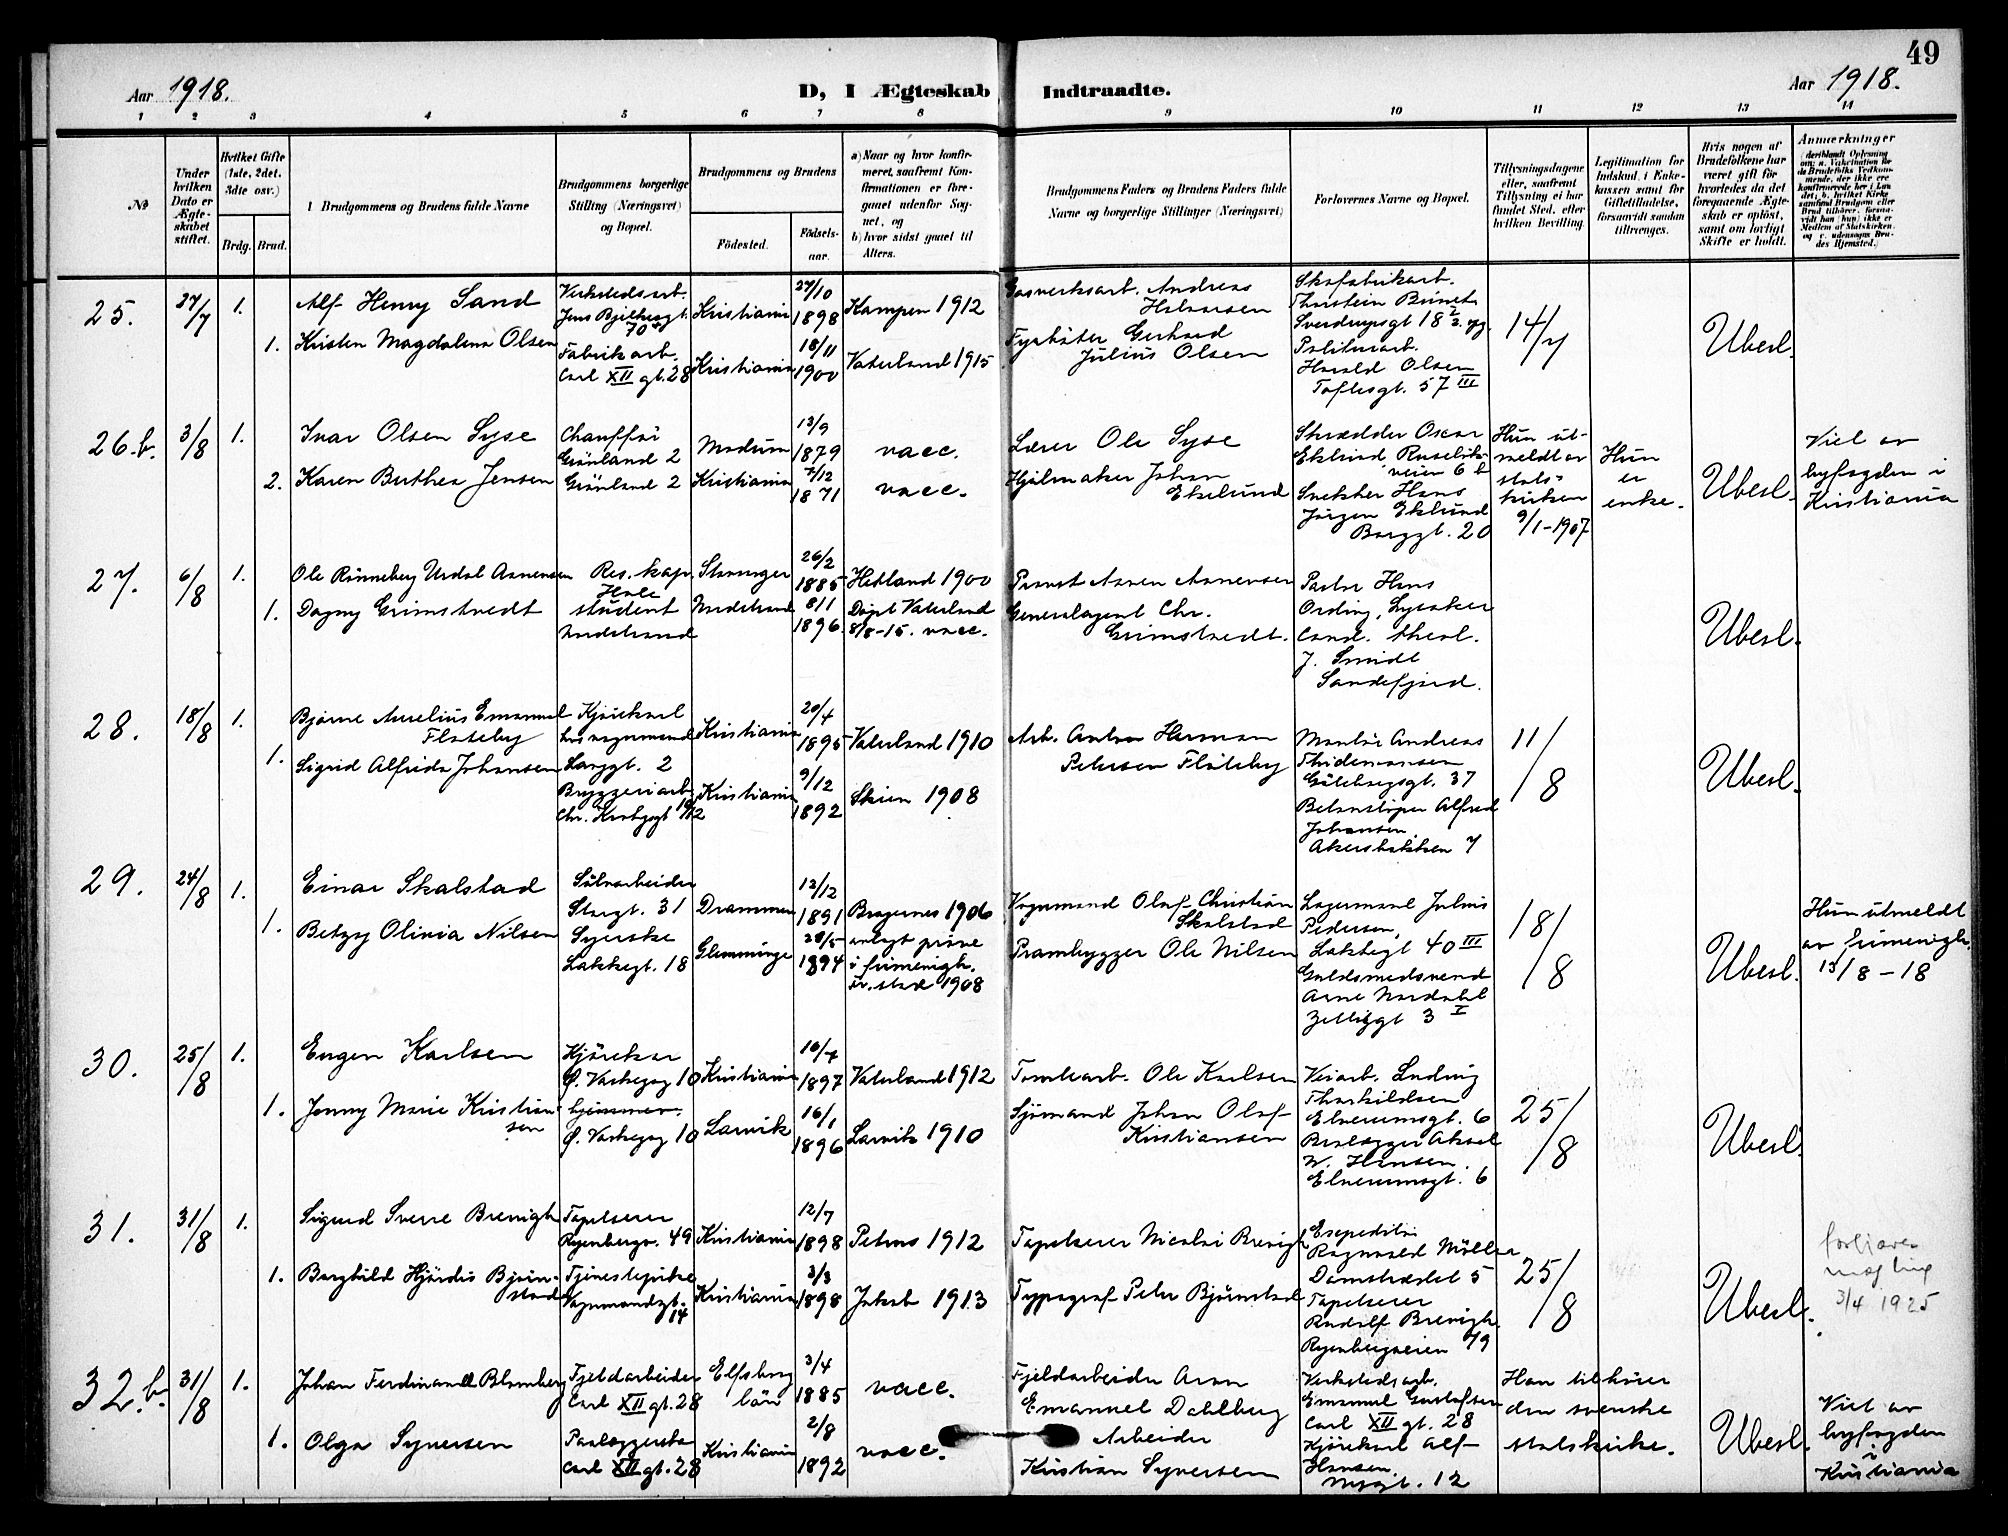 49
Aar 1918.
D, I Ægteskab Indtraadte.
Aar 1918.
1 2 3 4 5 6 7 8 9 10 11 12 13 14
No
Under hvilken Dato er Ægteskabet stiftet.
Hvilket Gifte (1ste, 2det, 3dte osv.)
Brdg. Brud.
1 Brudgommens og Brudens fulde Navne
Brudgommens borgerlige Stilling (Næringsvei) og Bopæl.
Brudgommens og Brudens
Födested.
Födselsaar.
a) Naar og hvor konfirmeret, saafremt Konfirmationen er foregaaet udenfor Sognet, og
b) hvor sidst gaaet til Alters.
Brudgommens Faders og Brudens Faders fulde Navne og borgerlige Stillinger (Næringsvei)
Forlovernes Navne og Bopæl.
Tillysningsdagene eller, saafremt Tillysning ei har fundet Sted, efter hvilken Bevilling.
Legitimation for Indskud i Enkekassen samt for Giftetilladelse, forsaavidt saadan tiltrænges.
Hvis nogen af Brudefolkene har været gift för hvorledes da det foregaaende Ægteskab er oplöst, samt om lovligt Skifte er holdt.
Anmærkninger
25. 27/7 1. Alf Henry Sand
Verkstedsarb.
Kristiania 27/10 1898
Kampen 1912
Gasverksarb. Andreas Halvorsen
Skofabrikarb.
Sverdrupsgt 18
14/7
Ubesl.
1. Kirsten Magdalena Olsen
Fabrikarb.
Carl XII gt. 28
Kristiania 18/11 1900
Vaterland 1915
Fyrbøter Gerhard Julius Olsen
Harald Olsen
Toftesgt. 57 III
26.b. 3/8 1. Ivar Olsen Syse
Chauffør
Grønland 2
Modum 13/9 1879
vacc.
Lærer Ole Syse
Skrædder Oscar Eklund
Hun utmeldt av statskirken 9/1-1907
Hun er enke.
Ubesl.
Viet av byfogden i Kristiania
2. Karen Berthea Jensen
Grønland 2
Kristiania 7/12 1871
vacc.
Hjulmaker Johan Ekelund
Snekker Hans Jørgen Eklund
Borggt. 20
27. 6/8 1. Ole Rønneberg Urdal Asmensen
Res. kap. Hole
Stavanger 26/2 1885
Hetland 1900
Pastor Hans Ording, Lysaker
Ubesl.
1. Dagny Grimstvedt
student
8/1 1896
Døpt Vaterland 8/8-15. vacc.
Generalagent Chr. Grimstvedt.
Cand. theol. J. Smidt
Sandefjord.
28. 18/8 1. Bjarne Aurelius Emanuel Flateby
Kjørekarl
hos vognmand
Langgt. 2
Kristiania 20/4 1895
Vaterland 1910
Arb. Anton Herman Petersen Flateby
Montør Andreas Thidemansen
Gøteborggt. 37
11/8
Ubesl.
1. Sigrid Alfrida Johansen
Bryggeriarb.
Kristiania 9/12 1892
Skien 1908
Betonstøper Alfred Johansen
Akersbakken 7
29. 24/8 1. Einar Skalstad
Sølvarbeider
Storgt. 31
Drammen 12/12 1891
Bragernes 1906
Vognmand Olaf Christian Skalstad
Lagermand Julius Pedersen,
Lakkegt 40 III
18/8
Ubesl.
Hun utmeldt av frimenigh. 15/8 - 18
1. Betzy Olivia Nilsen
Syerske
Lakkegt. 18
Glemminge 28/5 1894
avlagt prøve i frimenigh. Fr.stad 1908
Prambygger Ole Nilsen
Guldsmedsvend Arne Nordahl
3 I
30. 25/8 1. Eugen Karlsen
Kjørekar
Ø. Vaskegang 10
Kristiania 16/7 1897
Vaterland 1912
Tomtearb. Ole Karlsen
Veiarb. Ludvig Thorkildsen
Elverumsgt. 6
25/8
Ubesl.
1. Jenny Marie Kristiansen
hjemmev.
Ø. Vaskegang 10
Larvik 16/1 1896
Larvik 1910
Sjømand Johan Olaf Kristiansen
Brolægger Aksel W. Hansen.
Elverumsgt. 6
31. 31/8 1. Sigurd Sverre Brevigh
Tapetserer
Ryenbergv. 49
Kristiania 12/7 1898
Petrus 1912
Tapetserer Nicolai Brevigh
Expeditør Ragnvald Møller
Damstrædet 5
25/8
Ubesl.
3/4 1925
1. Borghild Hjørdis Bjørnstad
Tjenestepike
Vognmandsgt. 14
Kristiania 3/3 1898
Jakob 1913
Typograf Peter Bjørnstad
Tapetserer Rudolf Brevigh.
Ryenbergveien 49
32.b. 31/8 1. Johan Ferdinand Blomberg
Fjeldarbeider
Carl XII gt. 28
Elfsborg län 3/4 1885
vacc.
Fjeldarbeider Aron Emanuel Dahlberg
Verkstedsarb. Emanuel Gustafsen
Carl XII gt. 28
Han tilhører den svenske statskirke.
Ubesl.
Viet av byfogden i Kristiania
1. Olga Syversen
Carl XII gt. 28
Kristiania 2/8 1892
vacc.
Arbeider Kristian Syversen
Kjørekarl Alf Hansen,
Nygt. 12